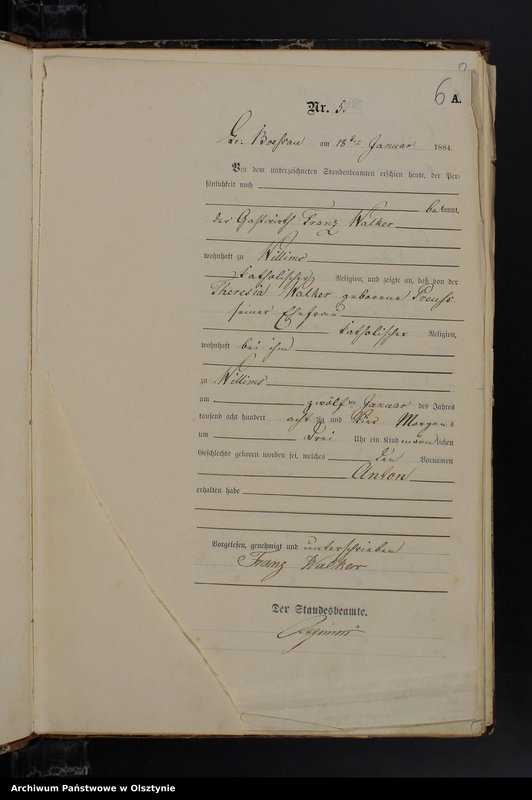 6 A.
Nr. 5.
Gr. Boessau am 18ten Januar 1884.
Vor dem unterzeichneten Standesbeamten erschien heute, der Per-
sönlichkeit nach
bekannt,
der Gastwirth Franz Walker
wohnhaft zu Willims
katholischer Religion, und zeigte an, daß von der
Theresia Walker geborene Preuß
seiner Ehefrau
katholischer Religion,
wohnhaft bei ihm
zu Willims
am zwölften Januar des Jahres
tausend acht hundert achtzig und Vier Morgens
um Drei Uhr ein Kind männlichen
Geschlechts geboren worden sei, welches den Vornamen
Anton
erhalten habe
Vorgelesen, genehmigt und unterschrieben
Franz Walker
Der Standesbeamte.
Archiwum Państwowe w Olsztynie